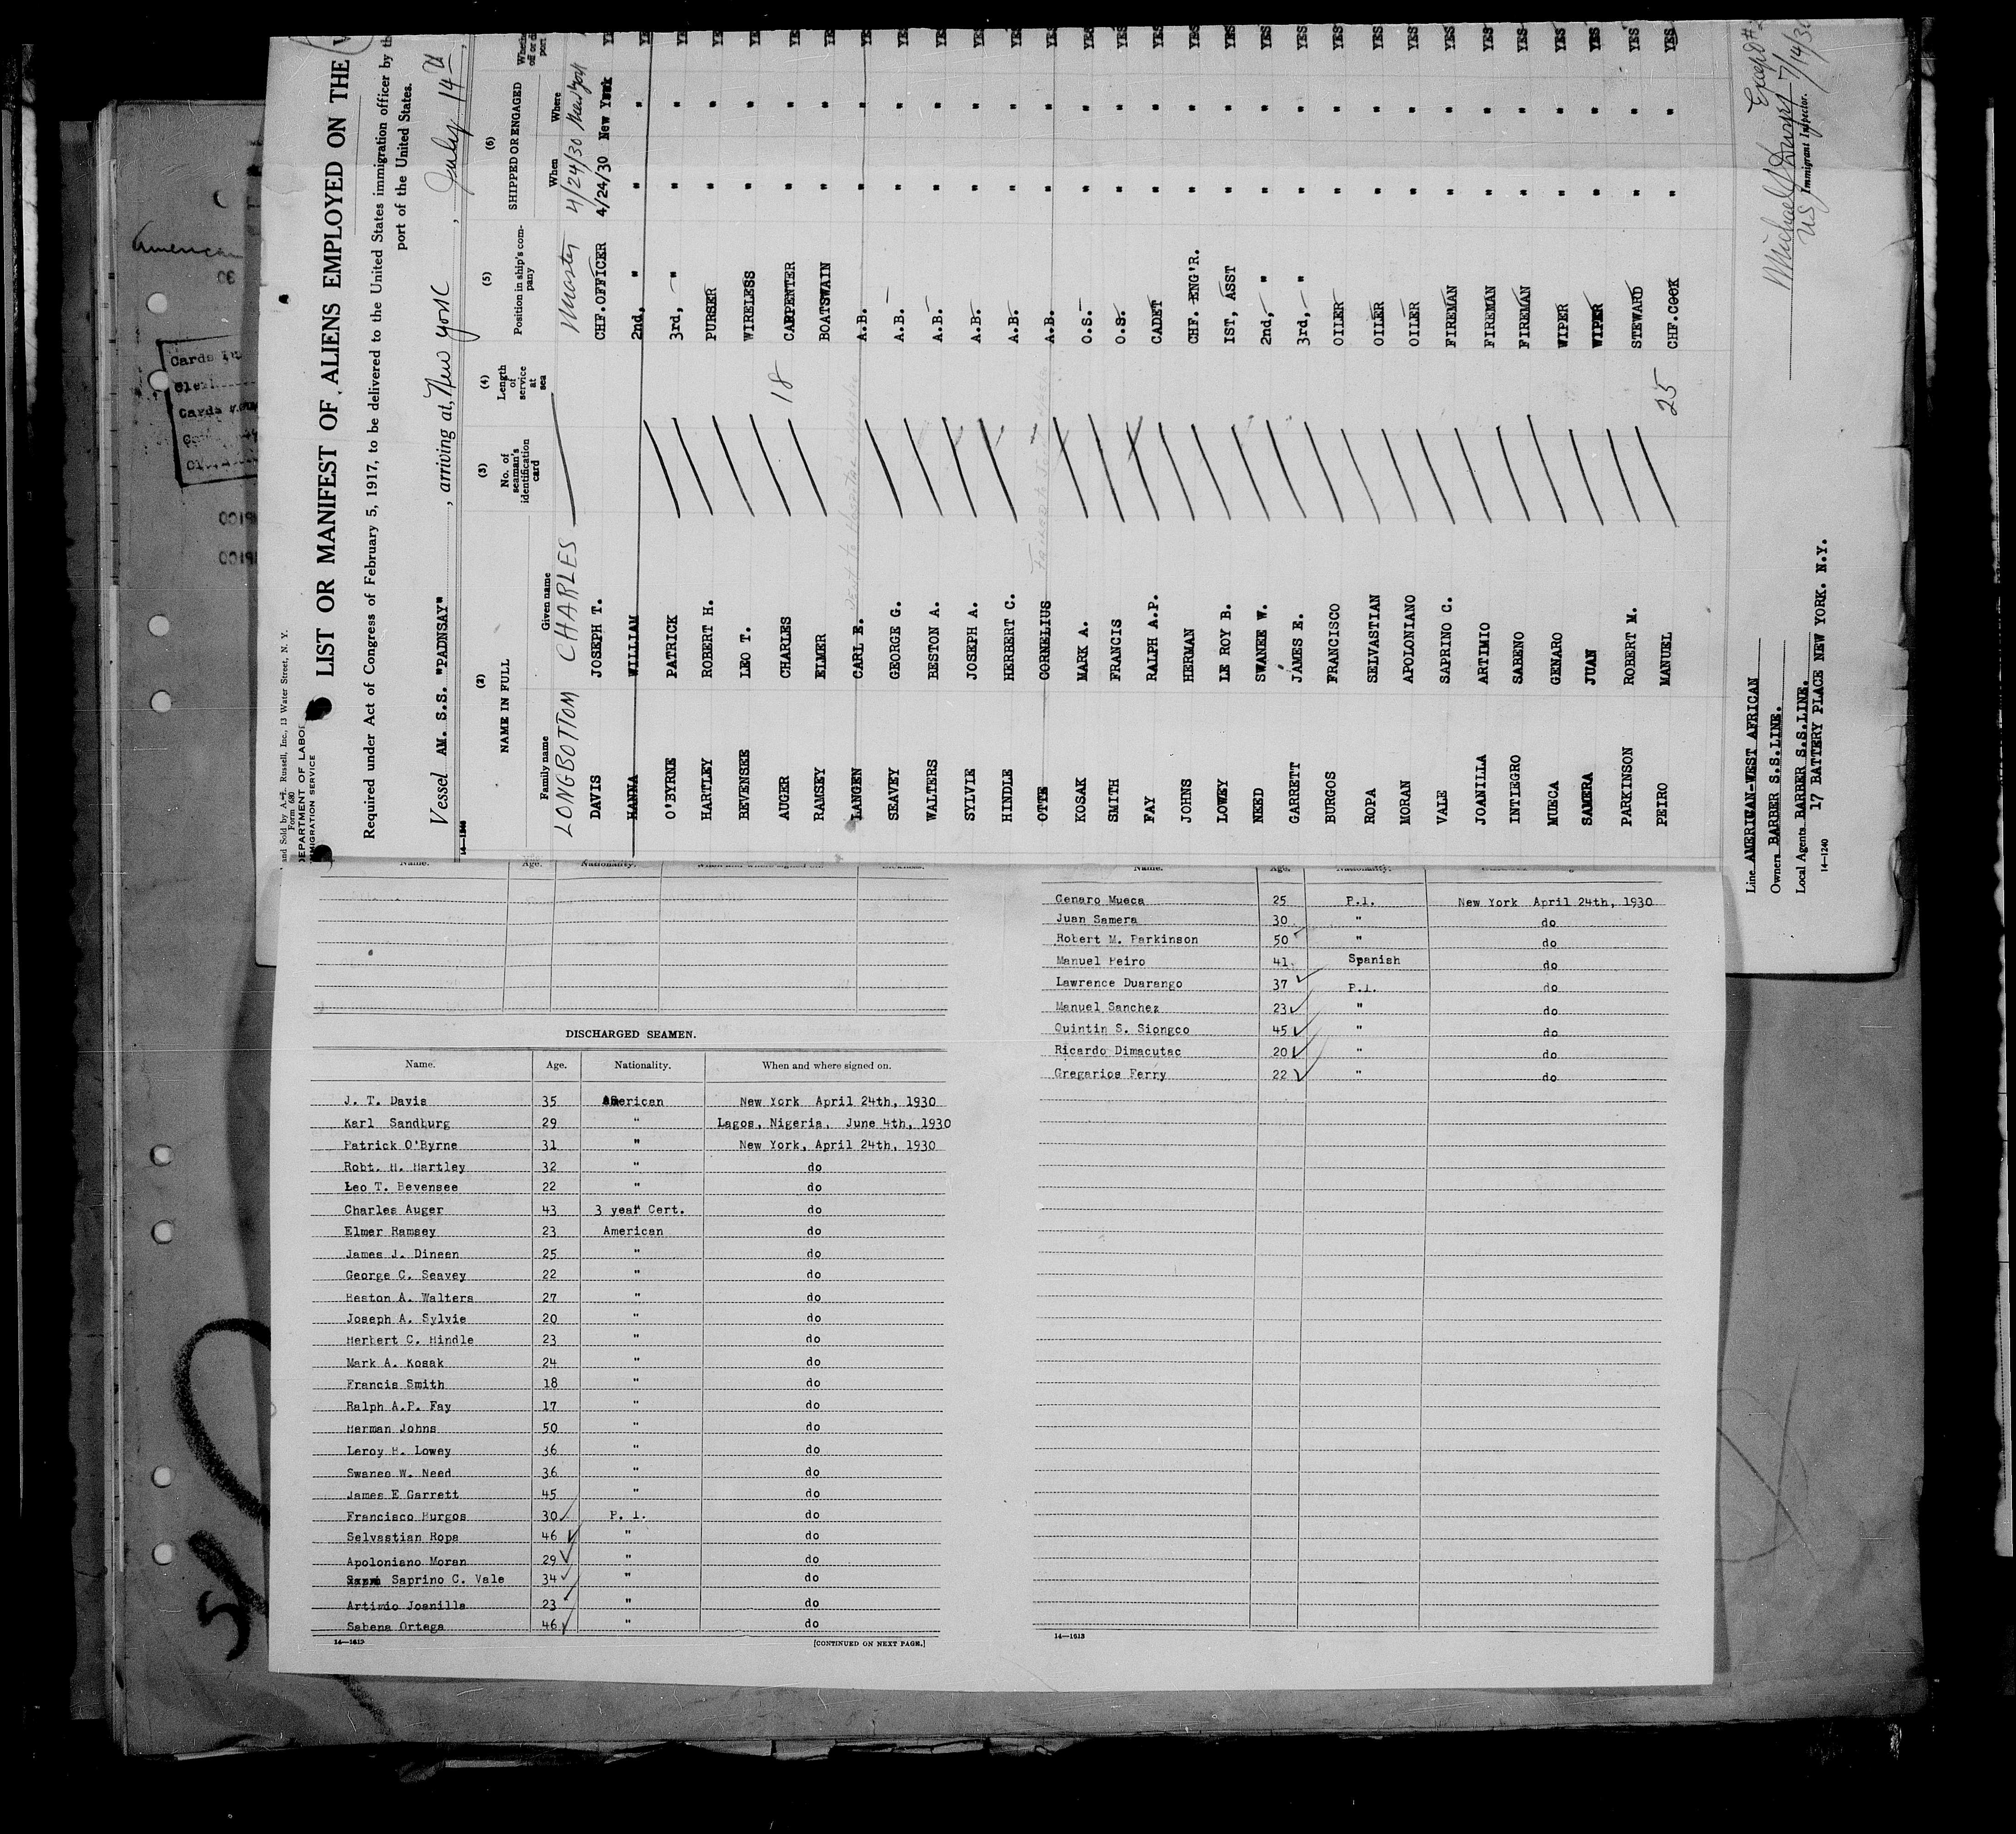 and Sold by A. T. Russell, Inc., 13 Water Street, N. Y.
Form 680
DEPARTMENT OF LABOR
IMMIGRATION SERVICE
LIST OR MANIFEST OF ALIENS EMPLOYED ON THE
Required under Act of Congress of February 5, 1917, to be delivered to the United States immigration officer by th
port of the United States.
Vessel AM. S.S. "PADNSAY" , arriving at, New York , July 14th ,
14—1240
(2) (3) (4) (5) (6)
NAME IN FULL No. of seaman's identification card Length of service at sea Position in ship's company SHIPPED OR ENGAGED
Family name Given name When Where
LONGBOTTOM CHARLES Master 4/24/30 New York
DAVIS JOSEPH T. CHF. OFFICER 4/24/30 New York YES
HANNA WILLIAM 2nd, " " " YES
O'BYRNE PATRICK 3rd, " " " YES
HARTLEY ROBERT H. PURSER " " YES
BEVENSEE LEO T. WIRELESS " " YES
AUGER CHARLES 18 CARPENTER " " YES
RAMSEY ELMER BOATSWAIN " " YES
LANGEN CARL E. A.B. " " YES
SEAVEY GEORGE G. A.B. " " YES
WALTERS BESTON A. A.B. " " YES
SYLVIE JOSEPH A. A.B. " " YES
HINDLE HERBERT C. A.B. " " YES
OTTE CORNELIUS A.B. " " YES
KOSAK MARK A. O.S. " " YES
SMITH FRANCIS O.S. " " YES
FAY RALPH A.P. CADET " " YES
JOHNS HERMAN CHF. ENG'R. " " YES
LOWEY LE ROY B. 1ST, ASST " " YES
NEED SWANEE W. 2nd, " " " YES
GARRETT JAMES E. 3rd, " " " YES
BURGOS FRANCISCO OILER " " YES
ROPA SELVASTIAN OILER " " YES
MORAN APOLONIANO OILER " " YES
VALE SAPRINO C. FIREMAN " " YES
JOANILLA ARTIMIO FIREMAN " " YES
INTIEGRO SABENO FIREMAN " " YES
MUECA GENARO WIPER " " YES
SAMERA JUAN WIPER " " YES
PARKINSON ROBERT M. STEWARD " " YES
PEIRO MANUEL 25 CHF. COOK " " YES
Line AMERICAN-WEST AFRICAN
Owners BARBER S.S.LINE.
Local Agents BARBER S.S.LINE.
17 BATTERY PLACE NEW YORK. N.Y.
14—1240
Except #2
7/14/30
US Immigrant Inspector.
American
DISCHARGED SEAMEN.
Name. Age. Nationality. When and where signed on.
J. T. Davis 35 American New York April 24th, 1930
Karl Sandburg 29 " Lagos, Nigeria, June 4th, 1930
Patrick O'Byrne 31 " New York, April 24th, 1930
Robt. H. Hartley 32 " do
Leo T. Bevensee 22 " do
Charles Auger 43 3 year Cert. do
Elmer Ramsey 23 American do
James J. Dineen 25 " do
George C. Seavey 22 " do
Heston A. Walters 27 " do
Joseph A. Sylvie 20 " do
Herbert C. Hindle 23 " do
Mark A. Kosak 24 " do
Francis Smith 18 " do
Ralph A.P. Fay 17 " do
Herman Johns 50 " do
Leroy H. Lowey 36 " do
Swanee W. Need 36 " do
James E Garrett 45 " do
Francisco Burgos 30 P. I. do
Selvastian Ropa 46 " do
Apoloniano Moran 29 " do
Saprino C. Vale 34 " do
Artimio Joanilla 23 " do
Sabena Ortega 46 " do
14—1613 [CONTINUED ON NEXT PAGE.]
Name. Age. Nationality.
Genaro Mueca 25 P.I. New York April 24th, 1930
Juan Samera 30 " do
Robert M. Parkinson 50 " do
Manuel Peiro 41 Spanish do
Lawrence Duarango 37 P.I. do
Manuel Sanchez 23 " do
Quintin S. Siongco 45 " do
Ricardo Dimacutac 20 " do
Gregarios Ferry 22 " do
14—1613